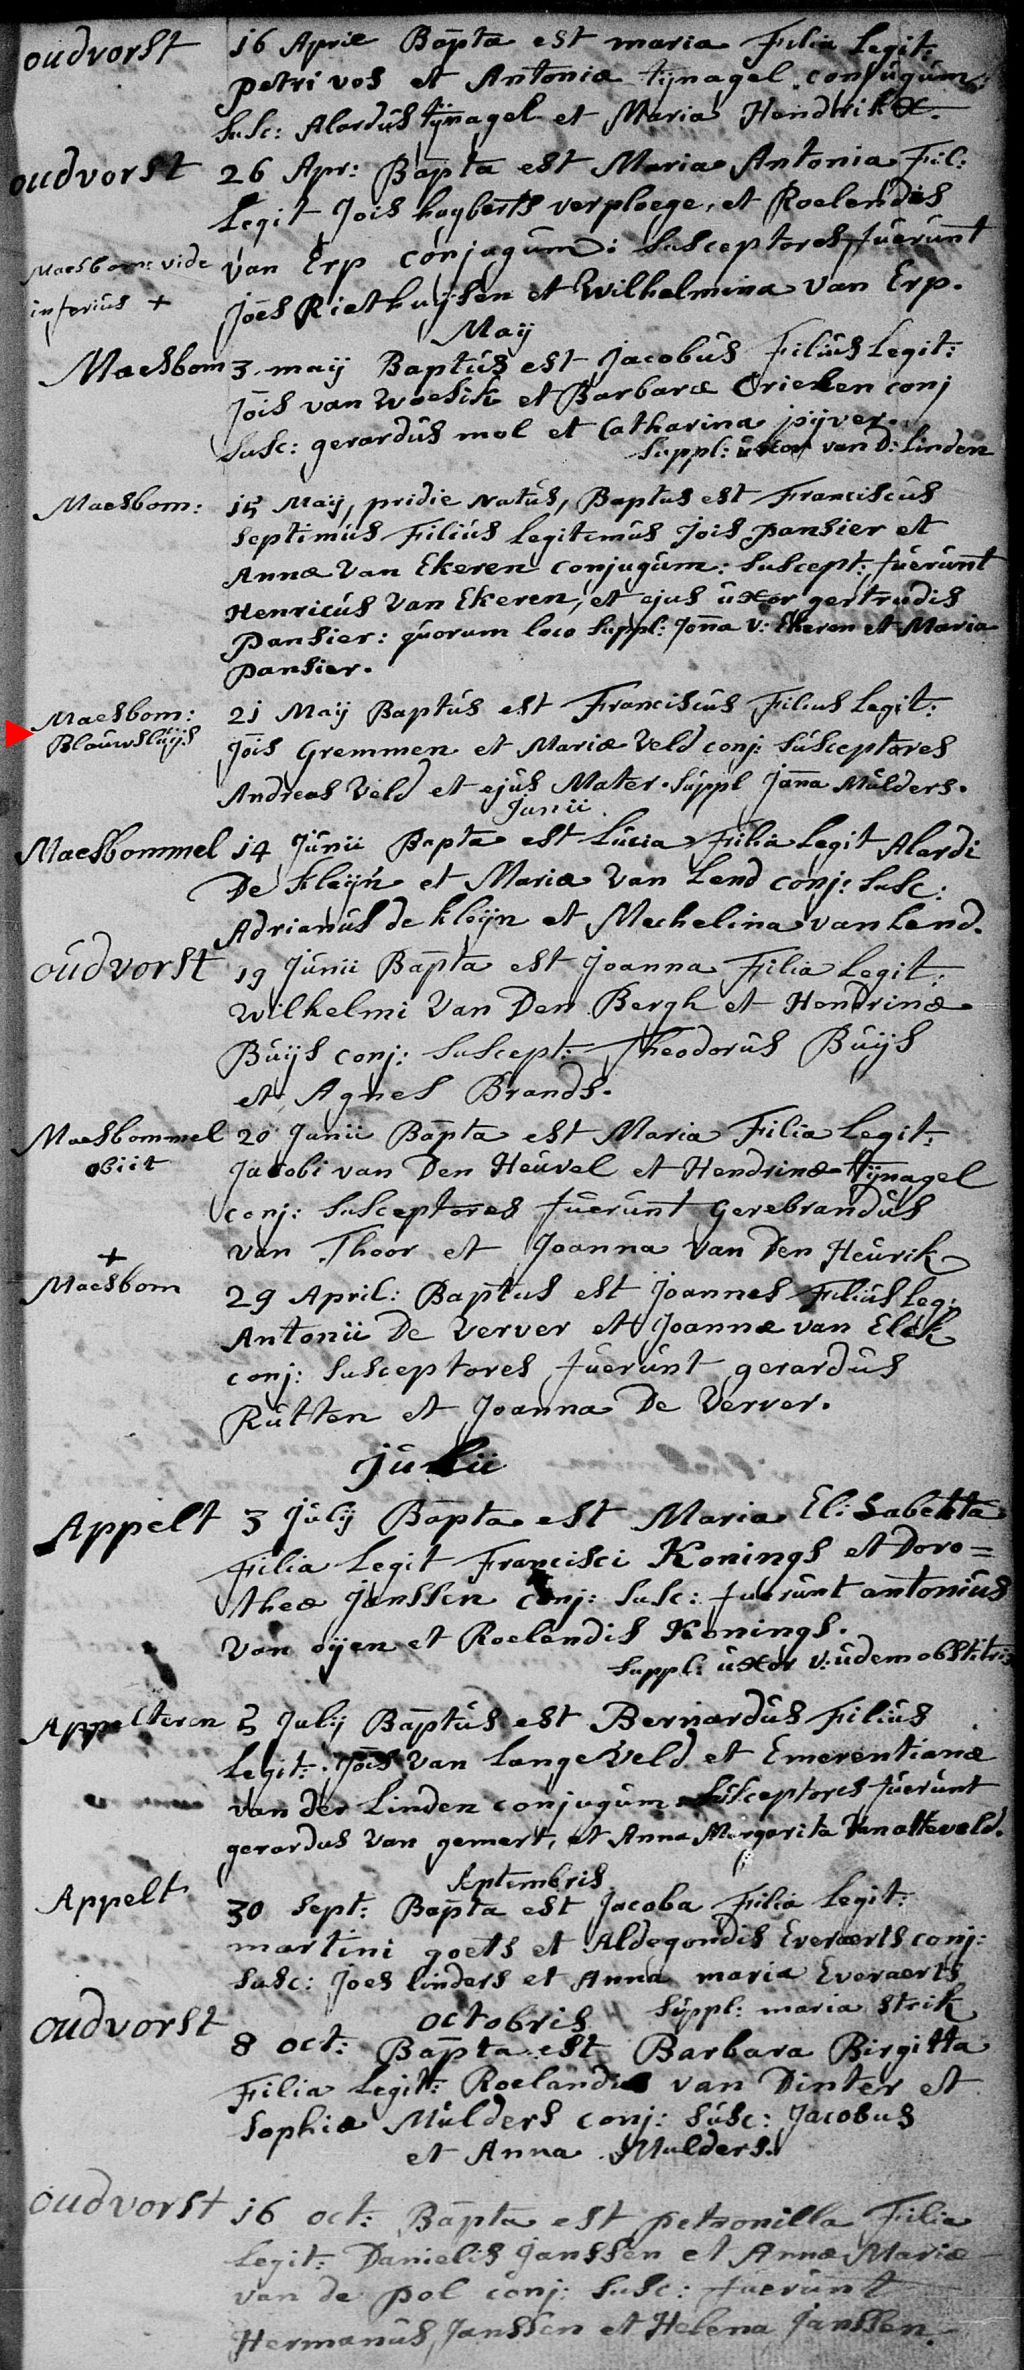 oudvorst 16 Aprie Bapta est maria Filia Legit:
petri vos et Antoniæ tijnagel conjugum:
Susc: Alardus tijnagel et Maria Hendrikx.
oudvorst 26 Apr: Bapta est Maria Antonia Fil:
Legit Jois huyberts verploege, et Roelendis
Maesbom: vide van Erp conjugum: Susceptores fuerunt
inferius + Joes Riethuijsen et Wilhelmina van Erp.
May
Maesbom 3 maij Baptus est Jacobus Filius Legit:
Jois van Woesik et Barbaræ Crieken conj
Susc: gerardus mol et Catharina pijver.
Suppl: uxor van D: Linden
Maesbom: 15 Maij, pridie Natus, Baptus est Franciscus
Septimus Filius Legitimus Jois pansier et
Annæ Van Ekeren conjugum: Suscept: fuerunt
Henricus Van Ekeren, et ejus uxor gertrudis
Pansier: quorum loco Suppl: Jonna v: Ekeren et Maria
Pansier.
Maesbom: 21 Maij Baptus est Franciscus Filius Legit:
Blauwsluijs Jois Gremmen et Mariæ Veld conj: Susceptores
Andreas Veld et ejus Mater. Suppl Janna Mulders.
Junii
Maesbommel 14 Junii Bapta est Lucia Filia Legit Alardi
De Kleijn et Mariæ Van Lend conj: Susc:
Adrianus de kleijn et Mechelina van Lend.
oudvorst 19 Junii Bapta est Joanna Filia Legit:
Wilhelmi Van Den Bergh et Hendrinæ
Buijs conj: Suscept: Theodorus Buijs
et Agnes Brands.
Maesbommel 20 Junii Bapta est Maria Filia Legit:
obiit Jacobi van Den Heuvel et Hendrinæ tijnagel
conj: Susceptores fuerunt Gerebrandus
van Thoor et Joanna Van Den Heurik
+
Maesbom 29 April: Baptus est Joannes Filius Leg:
Antonii De Verver et Joannæ van Elck
conj: Susceptores fuerunt gerardus
Rutten et Joanna De Verver.
Julii
Appelt 3 Julij Bapta est Maria Elisabetta
Filia Legit Francisci Konings et Doro=
theæ Janssen conj: Susc: fuerunt antonius
Van oijen et Roelendis Konings.
Suppl: uxor v: udem obstitrix
Appelteren 5 Julij Baptus est Bernardus Filius
Legit: Jois Van Lange Veld et Emerentianæ
van der Linden conjugum Susceptores fuerunt
gerardus Van gemert, et Anna Margarita Van atteveld.
Septembris
Appelt 30 Sept: Bapta est Jacoba Filia Legit:
martini goets et Aldegondis Everaerts conj:
Susc: Joes linders et Anna maria Everaerts
Suppl: maria Strik
octobris
oudvorst 8 oct: Bapta est Barbara Birgitta
Filia Legit: Roelandi van Dinter et
Sophiæ Mulders conj: Susc: Jacobus
et Anna Mulders.
oudvorst 16 oct: Bapta est petronilla Filia
Legit: Danielis Janssen et Annæ Mariæ
van de pol conj: Susc: fuerunt
Hermanus Janssen et Helena Janssen.